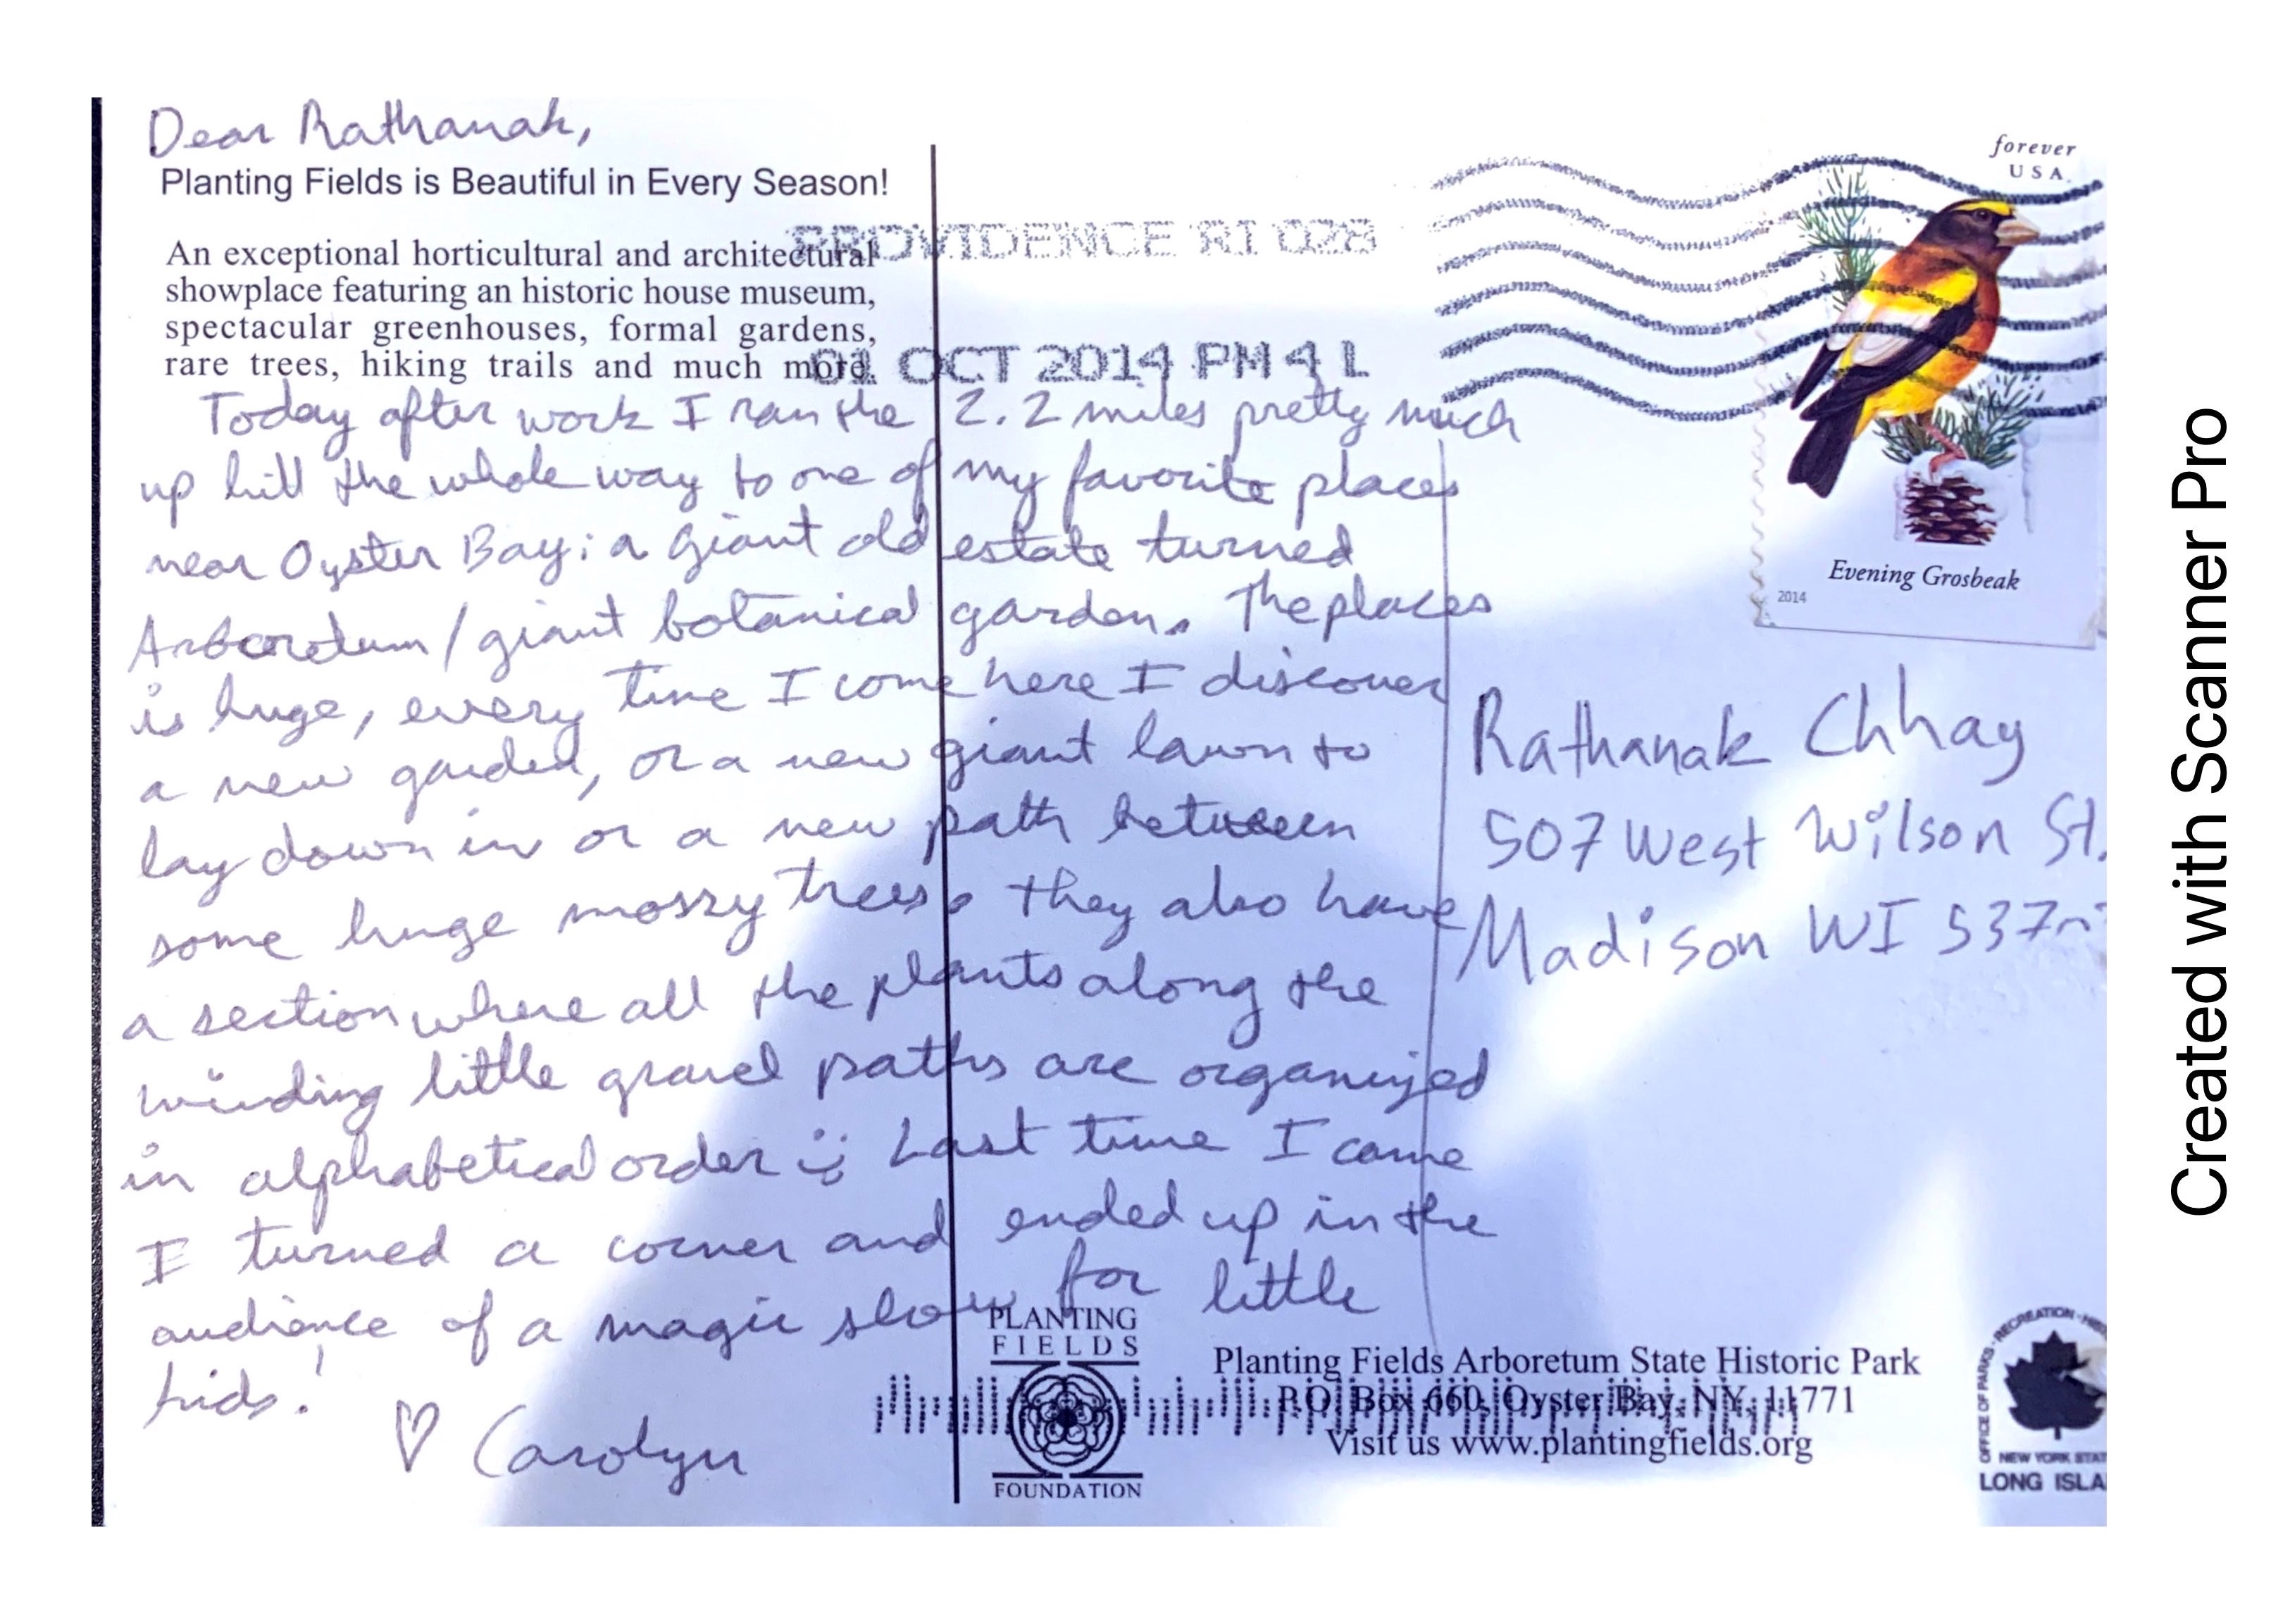 Dear Rathanak,
Planting Fields is Beautiful in Every Season!
An exceptional horticultural and architectural
showplace featuring an historic house museum,
spectacular greenhouses, formal gardens,
rare trees, hiking trails and much more.
PROVIDENCE RI 028
01 OCT 2014 PM 4 L
forever
USA
Evening Grosbeak
2014
Today after work I ran the 2.2 miles pretty much
up hill the whole way to one of my favorite places
near Oyster Bay: a giant old estate turned
Arboretum / giant botanical garden. The places
is huge, every time I come here I discover
a new garden, or a new giant lawn to
lay down in or a new path between
some huge mossy trees. They also have
a section where all the plants along the
winding little gravel paths are organized
in alphabetical order :) Last time I came
I turned a corner and ended up in the
audience of a magic show for little
kids!
♡ Carolyn
Rathanak Chhay
507 West Wilson St.
Madison WI 537
PLANTING
FIELDS
FOUNDATION
Planting Fields Arboretum State Historic Park
P.O. Box 660, Oyster Bay, NY, 11771
Visit us www.plantingfields.org
OFFICE OF PARKS, RECREATION
NEW YORK STAT
LONG ISLA
Created with Scanner Pro